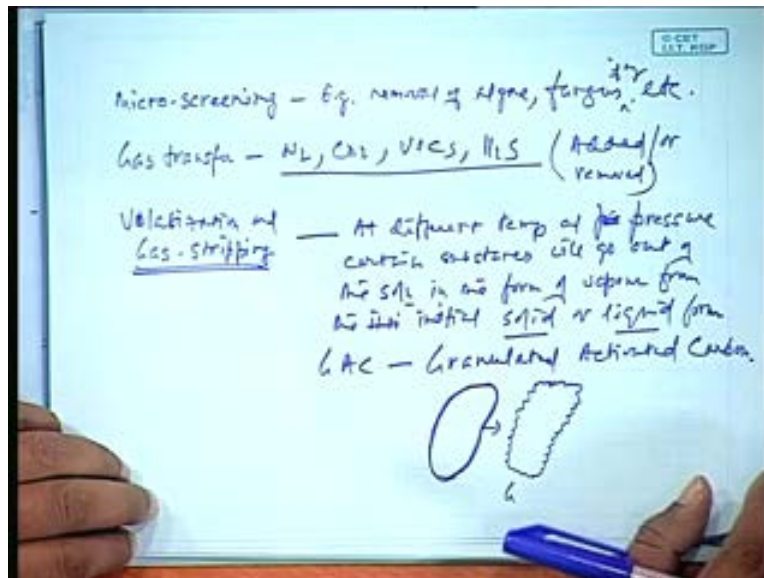 © CET
I.I.T. KGP
Micro-screening – Eg. removal of algae, fungus, etc.
Gas transfer – N2, , VOCS, H2S (Added/or
removed)
Volatization and – At different temp at pressure
Gas-stripping certain substances will go out of
the soln in the form of vapour from
the initial solid or liquid form
GAC – Granulated Activated Carbon.